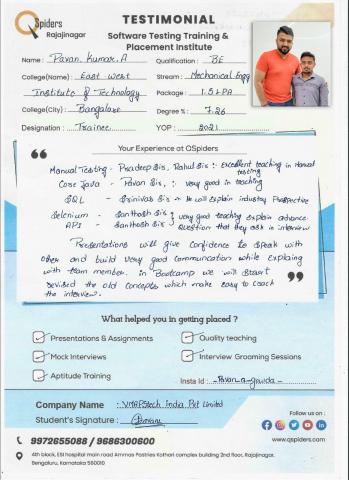 QSpiders
Rajajinagar
TESTIMONIAL
Software Testing Training &
Placement Institute
Name : Pavan. Kumar. A
Qualification : BE
College(Name) : East West
Stream : Mechanical Engg
Institute of Technology
Package : 1.5 LPA
College(City) : Bangalore
Degree % : 7.26
Designation : Trainee
YOP : 2021
Your Experience at QSpiders
Manual Testing - Pradeep Sir, Rahul Sir :- Excellent teaching in Manual
testing
Core Java - Pavan Sir, :- very good in teaching
SQL - Srinivas Sir - He will explain industry Prespective
Selenium - Santhosh Sir } very good teaching explain advance
API - Santhosh Sir } Question that they ask in interview
Presentations will give confidence to speak with
other and build very good communcation while explaing
with team member. in Bootcamp we will start
revised the old concepts which make easy to crack
the interview.
What helped you in getting placed ?
Presentations & Assignments
Quality teaching
Mock Interviews
Interview Grooming Sessions
Aptitude Training
Insta Id : Pavan_a_gowda
Company Name : VMAPStech India Pvt Limited
Student's Signature :
Follow us on :
9972655088 / 9686300600
www.qspiders.com
4th block, ESI hospital main road Ammas Pastries Kothari complex building 2nd floor, Rajajinagar,
Bengaluru, Karnataka 560010